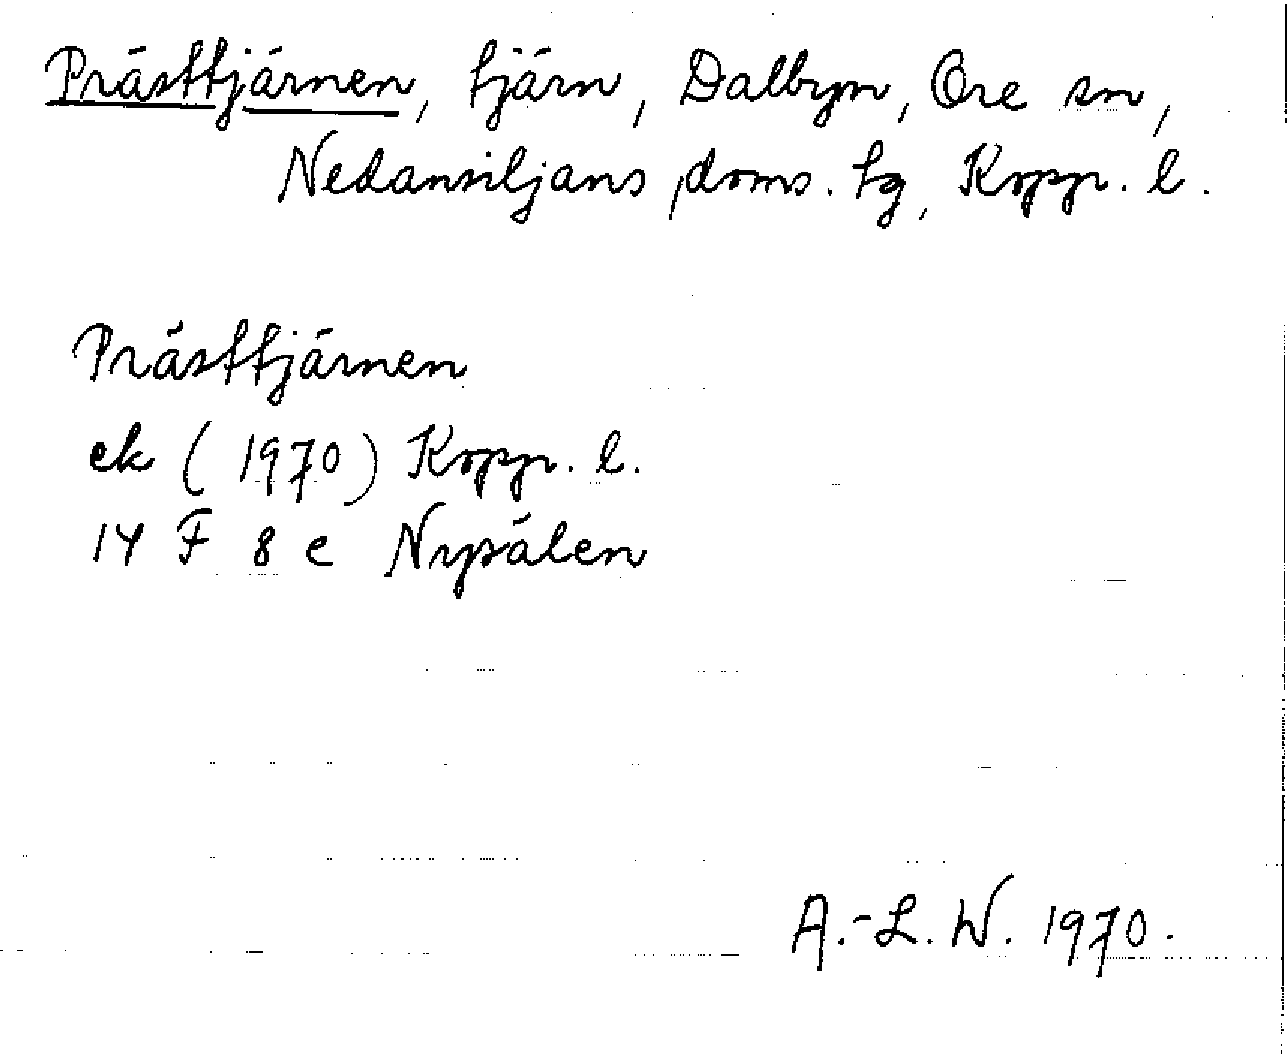 Prästtjärnen, tjärn, Dalbyn, Ore sn,
Nedansiljans doms. tg, Kopp. l.
Prästtjärnen
ek (1970) Kopp. l.
14 F 8 e Nysälen
A.-L. W. 1970.